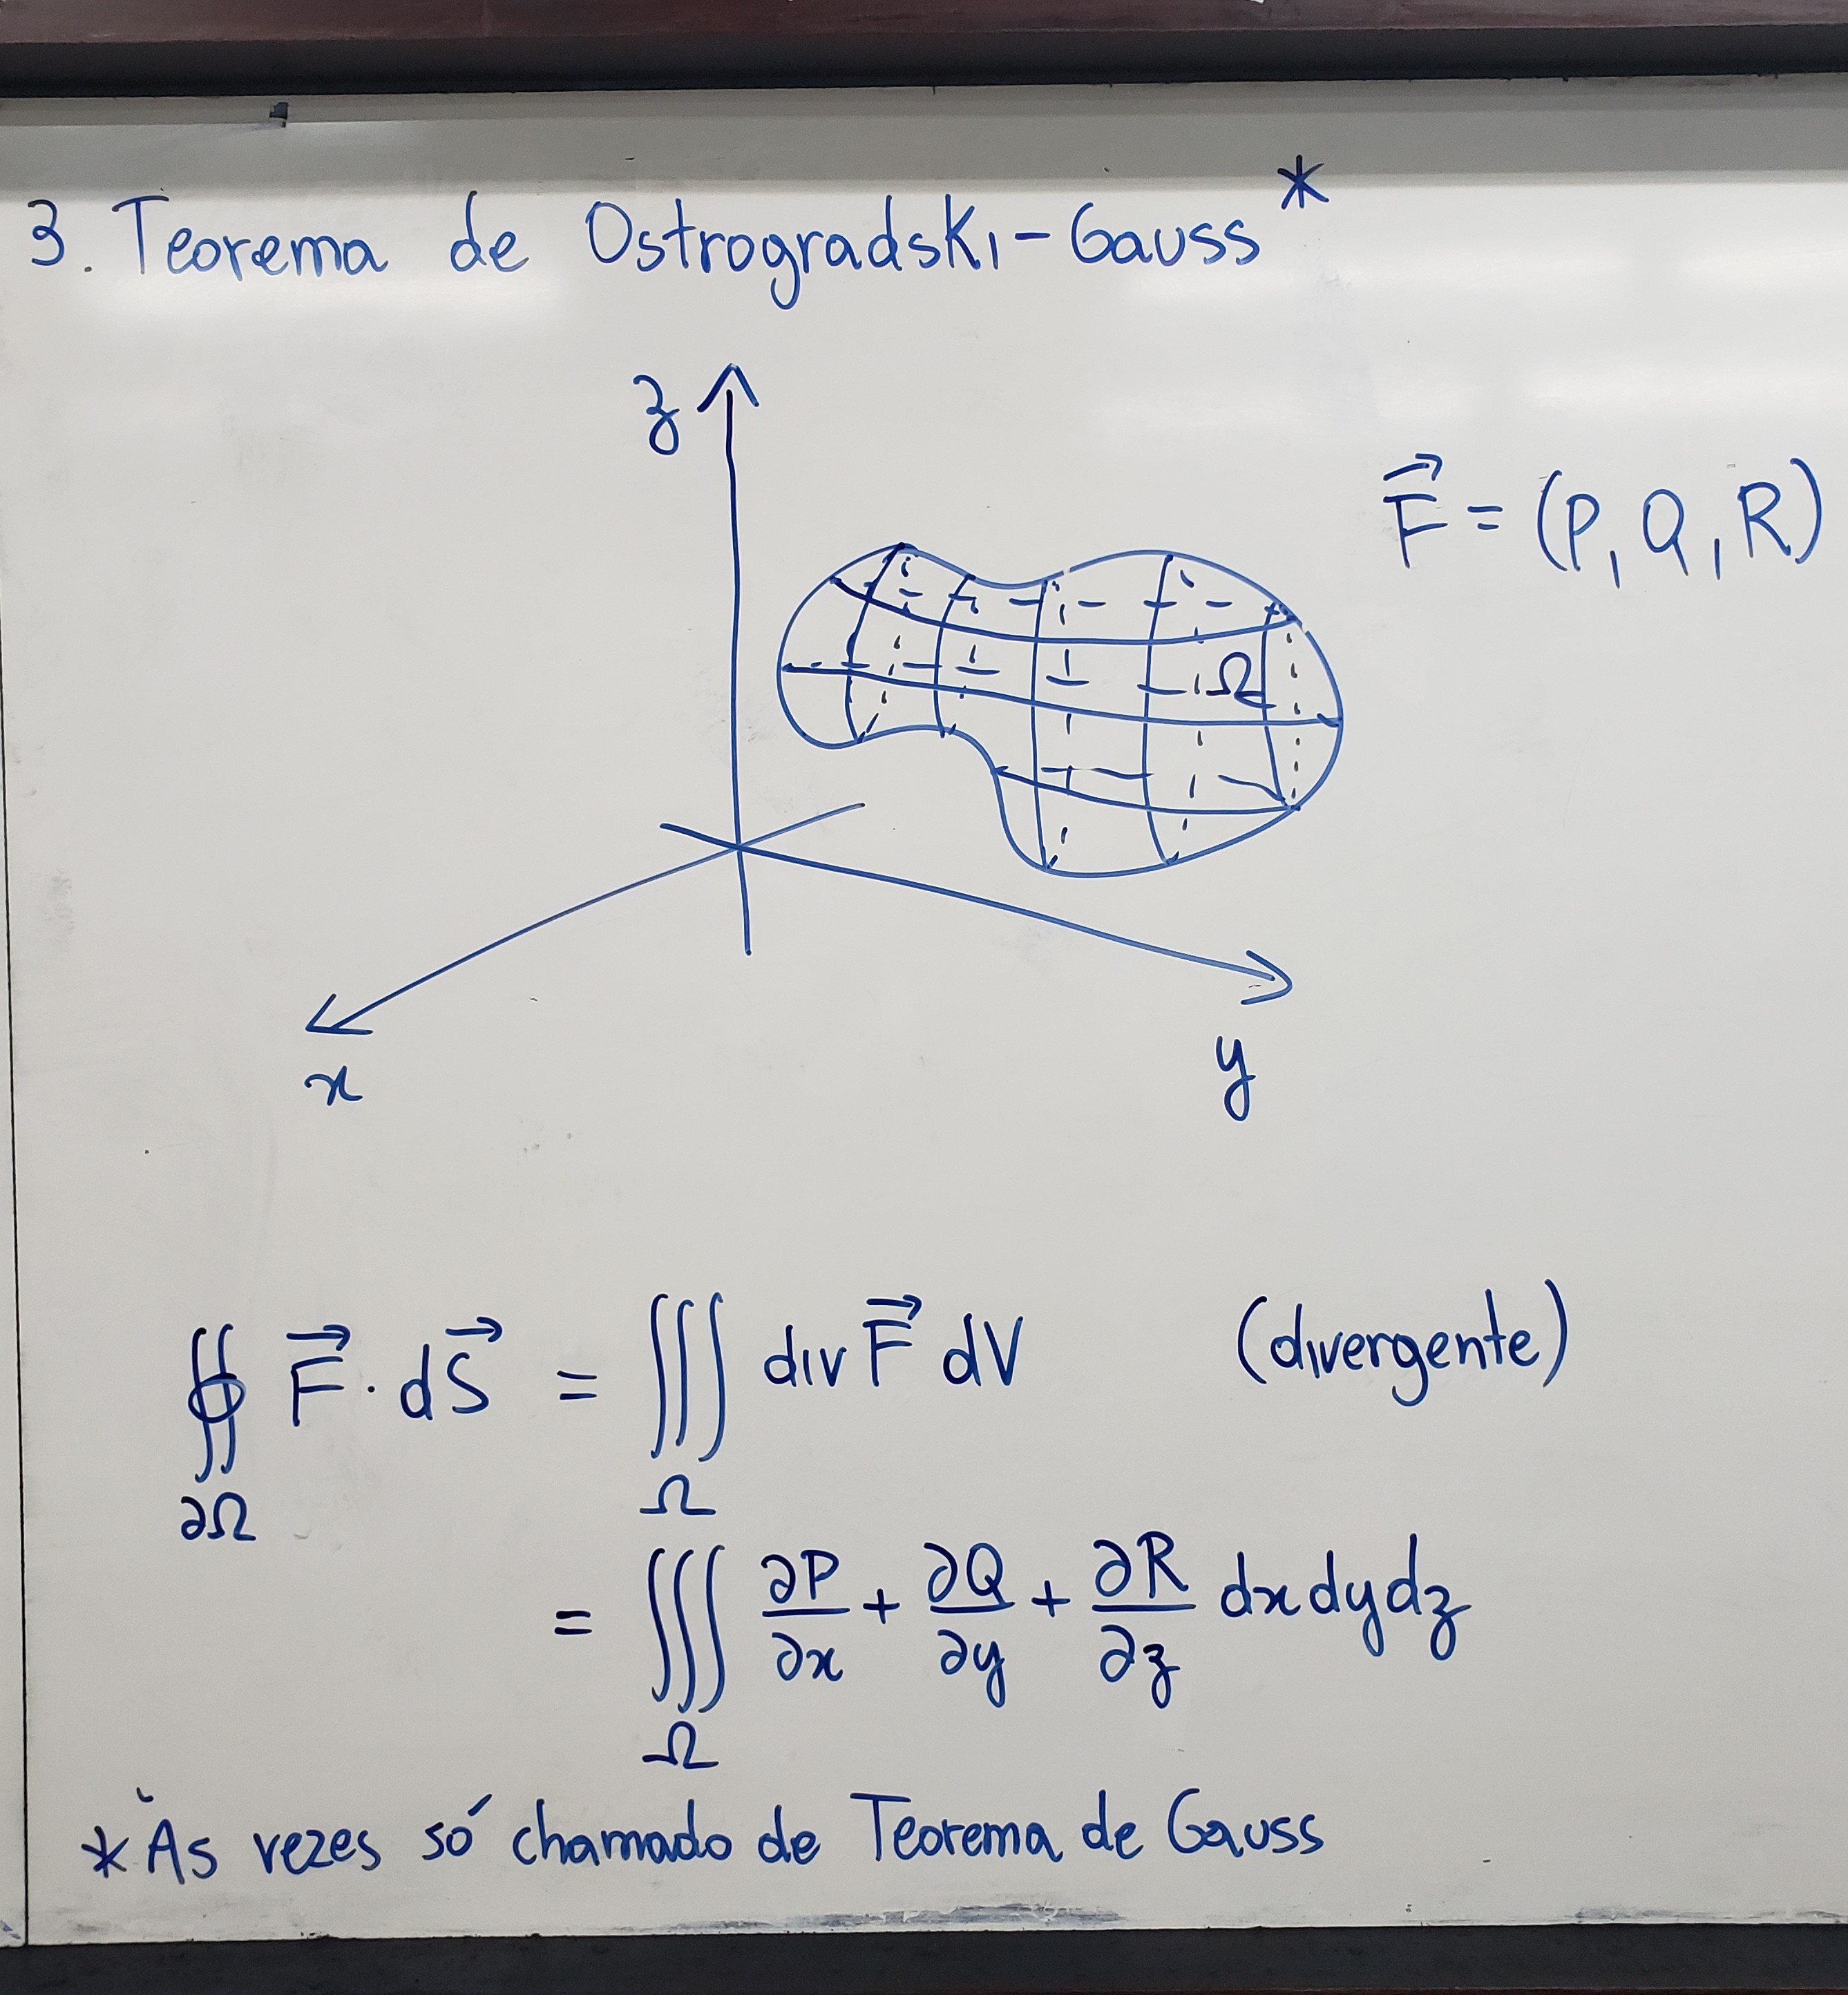 3. Teorema de Ostrogradski-Gauss*
z
F⃗ = (P, Q, R)
Ω
x
y
∯ F⃗ · dS⃗ = ∭ div F⃗ dV (divergente)
∂Ω Ω
= ∭ ∂P/∂x + ∂Q/∂y + ∂R/∂z dx dy dz
Ω
* Às vezes só chamado de Teorema de Gauss